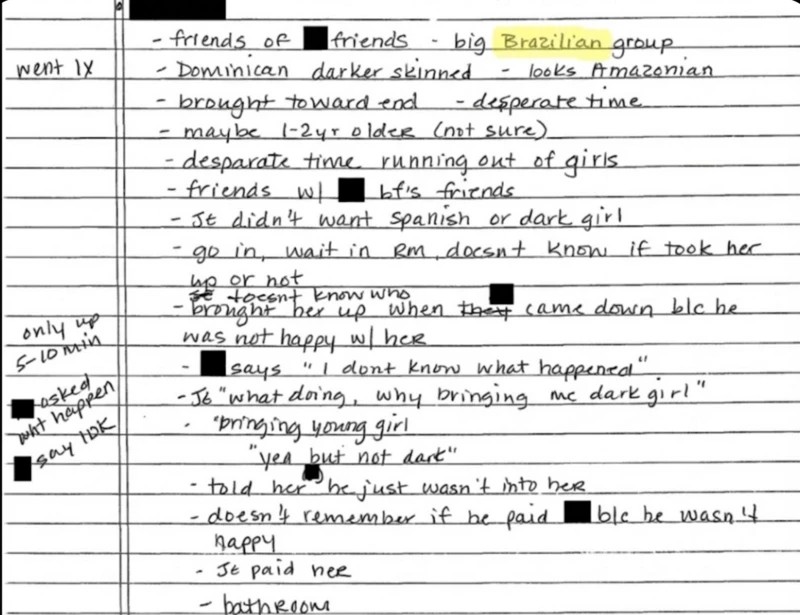 - friends of friends - big Brazilian group
went 1x
- Dominican darker skinned - looks Amazonian
- brought toward end - desperate time
- maybe 1-2yr older (not sure)
- desparate time running out of girls
- friends w/ bf's friends
- JE didn't want Spanish or dark girl
- go in, wait in RM, doesnt know if took her
up or not
doesnt know who
- brought her up when they came down b/c he
was not happy w/ her
only up
5-10 min
- says "I dont know what happened"
asked
wht happen
- JE "what doing, why bringing me dark girl"
- "bringing young girl
say IDK
"yea but not dark"
- told her he just wasn't into her
- doesn't remember if he paid b/c he wasn't
happy
- JE paid her
- bathroom